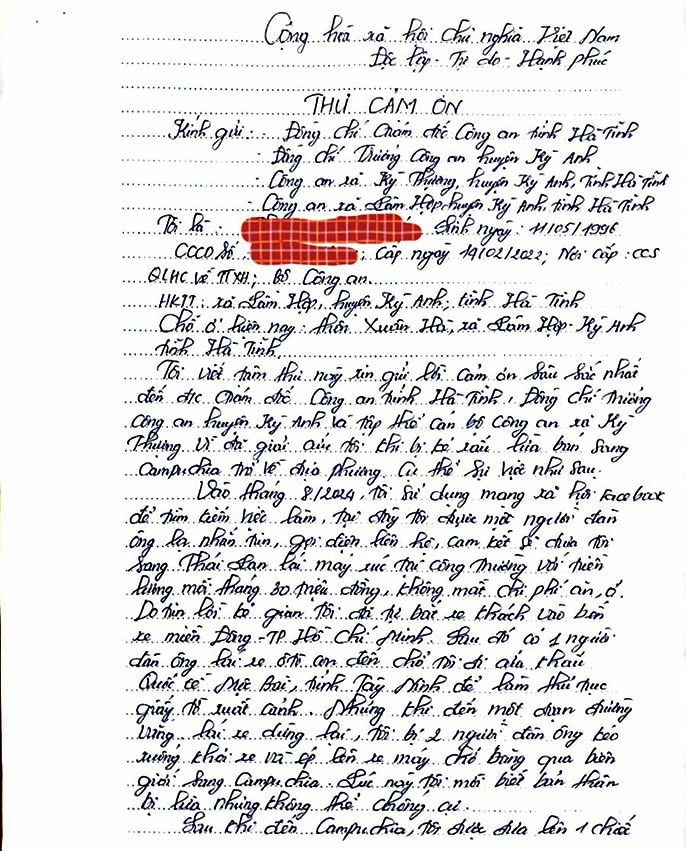 Cộng hoá xã hội chủ nghĩa Việt Nam
Độc lập - Tự do - Hạnh phúc
THƯ CẢM ƠN
Kính gửi: - Đồng chí Giám đốc Công an tỉnh Hà Tĩnh
- Đồng chí Trưởng Công an huyện Kỳ Anh
- Công an xã Kỳ Thượng, huyện Kỳ Anh, Tỉnh Hà Tĩnh
- Công an xã Lâm Hợp, huyện Kỳ Anh, tỉnh Hà Tĩnh
Tôi là: Sinh ngày: 11/05/1996
CCCD Số: Cấp ngày 19/02/2022; Nơi cấp: CCS
QLHC về TTXH; Bộ Công an.
HKTT: xã Lâm Hợp, huyện Kỳ Anh, tỉnh Hà Tĩnh
Chỗ ở hiện nay: thôn Xuân Hà, xã Lâm Hợp - Kỳ Anh
tỉnh Hà Tĩnh.
Tôi viết tâm thư này xin gửi lời cảm ơn sâu sắc nhất
đến đ/c Giám đốc Công an tỉnh Hà Tĩnh, Đồng chí Trưởng
công an huyện Kỳ Anh và tập thể cán bộ Công an xã Kỳ
Thượng vì đã giải cứu tôi khi bị kẻ xấu lừa bán sang
Campuchia trở về địa phương. Cụ thể sự việc như sau.
Vào tháng 8/2024, tôi sử dụng mạng xã hội Facebook
để tìm kiếm việc làm, tại đây tôi được một người đàn
ông lạ nhắn tin, gọi điện liên hệ, cam kết sẽ đưa tôi
sang Thái Lan lái máy xúc tại công trường với tiền
lương mỗi tháng 30 triệu đồng, không mất chi phí ăn, ở.
Do tin lời kẻ gian tôi đã tự bắt xe khách vào bến
xe miền Đông - TP Hồ Chí Minh. Sau đó có 1 người
đàn ông lái xe ô tô con đến chở tôi đi cửa khẩu
Quốc tế Mộc Bài, tỉnh Tây Ninh để làm thủ tục
giấy tờ xuất cảnh. Nhưng khi đến một đoạn đường
vắng, lái xe dừng lại, tôi bị 2 người đàn ông kéo
xuống khỏi xe và ép lên xe máy chở băng qua biên
giới sang Campuchia. Lúc này tôi mới biết bản thân
bị lừa nhưng không thể chống cự.
Sau khi đến Campuchia, tôi được đưa lên 1 chiếc